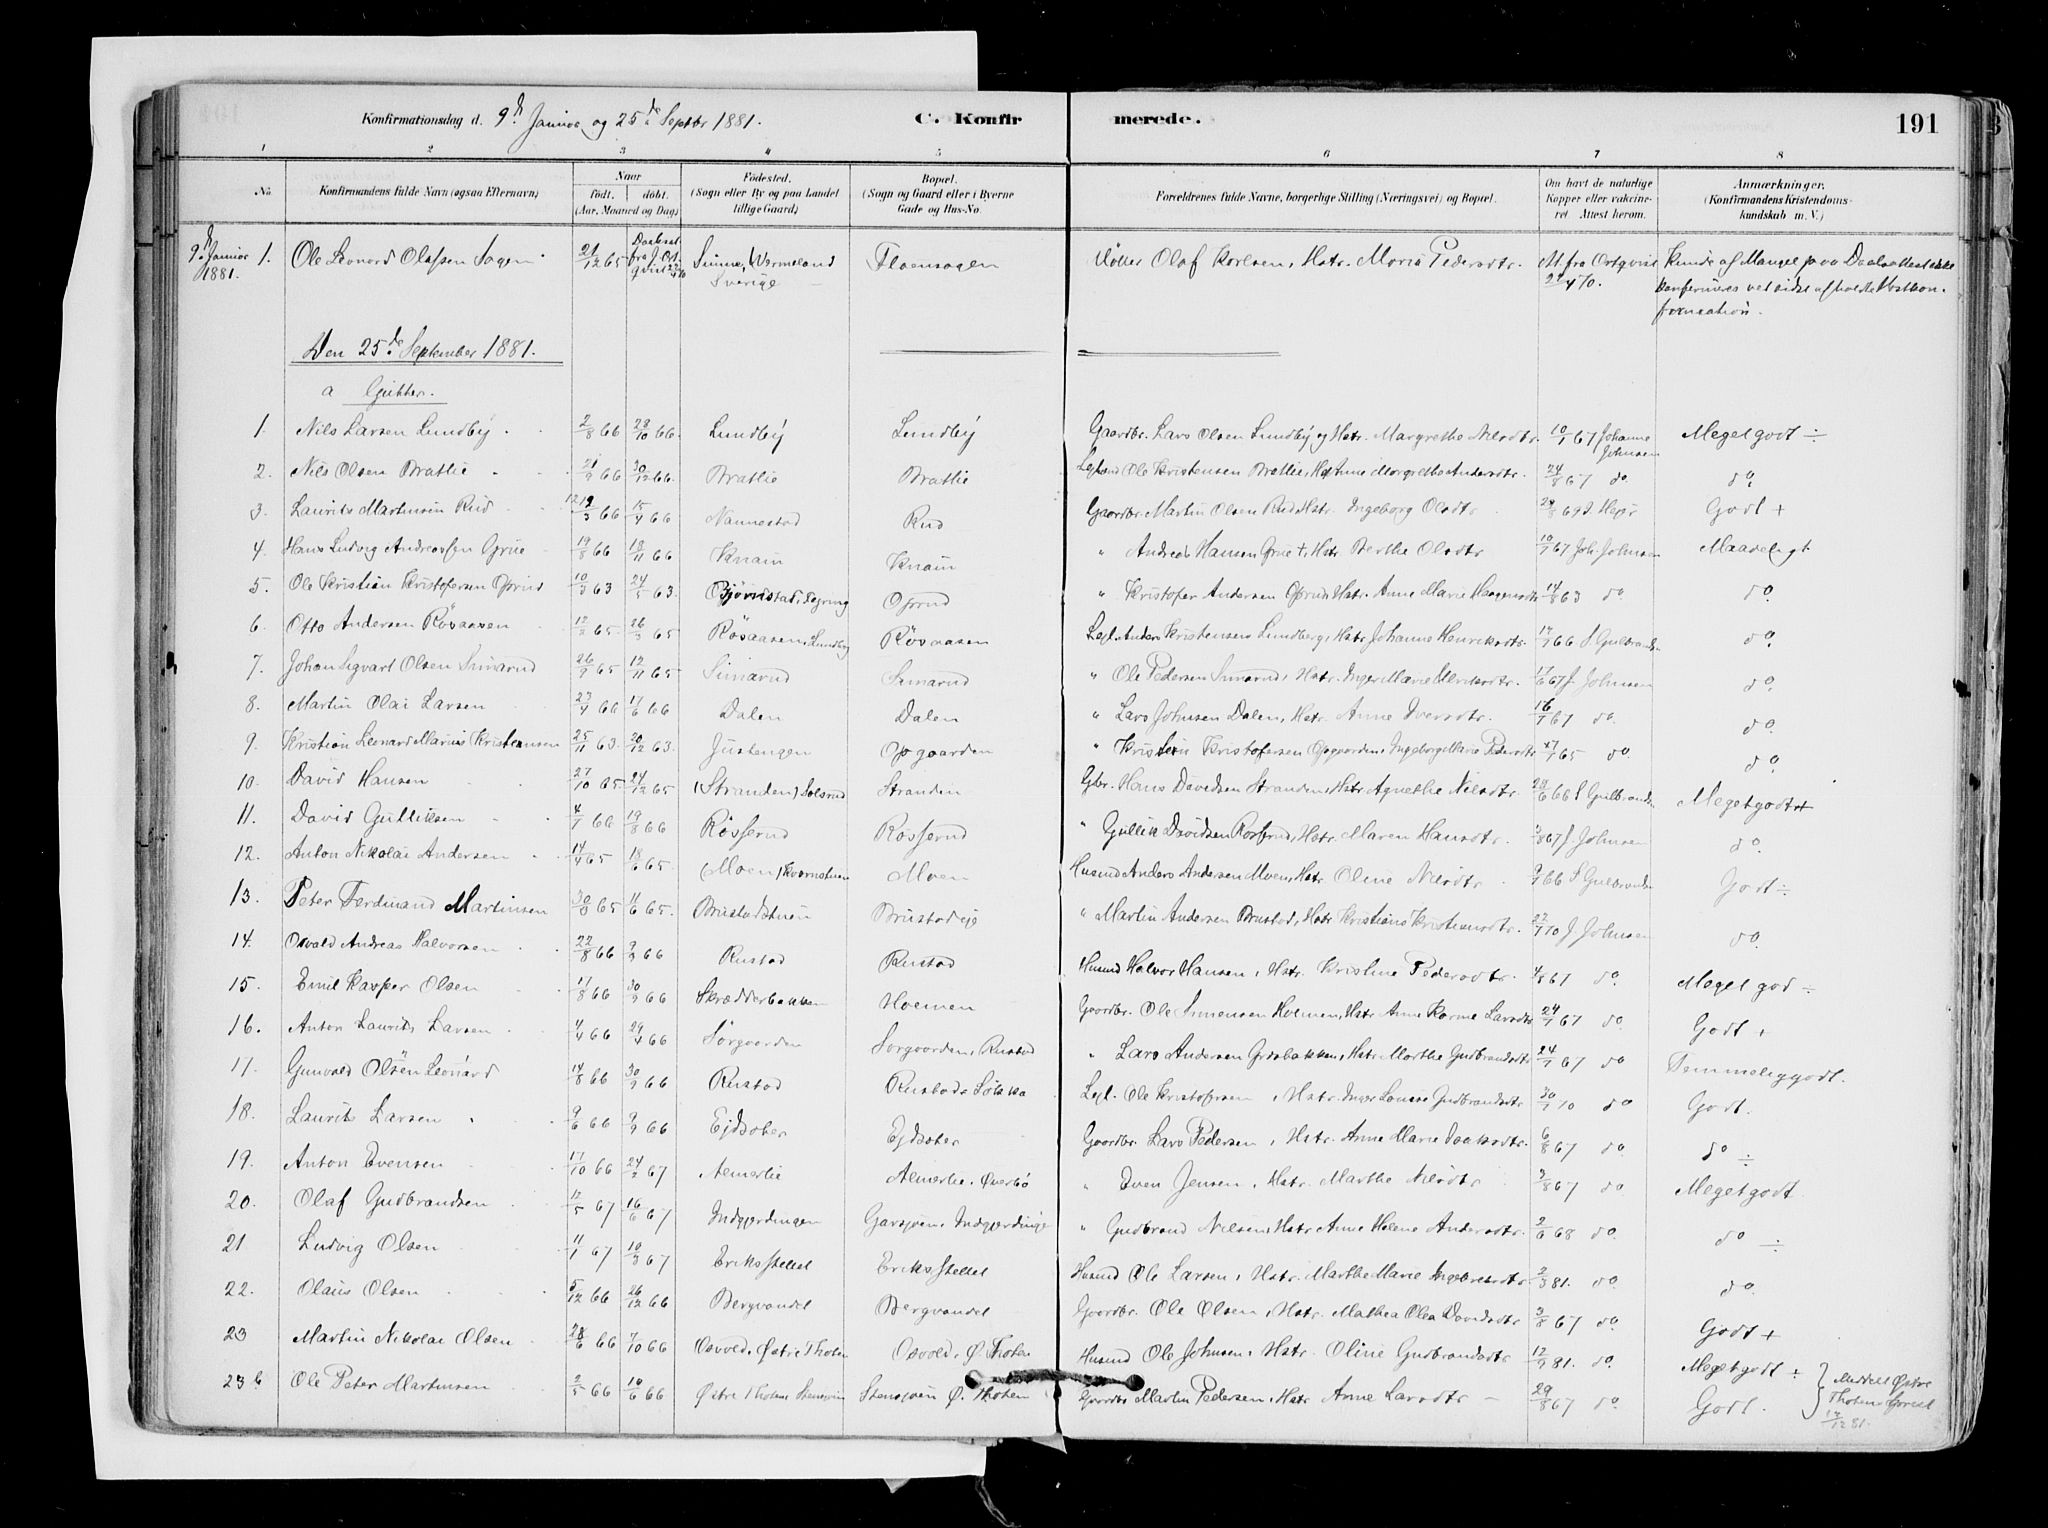 Konfirmationsdag d. 9de Januar og 25de Septbr 1881. C. Konfirmerede. 191
1 2 3 4 5 6 7 8
No. Konfirmandens fulde Navn (ogsaa Efternavn) Naar født. døbt. (Aar, Maaned og Dag) Födested. (Sogn eller By og paa Landet tillige Gaard) Bopæl. (Sogn og Gaard eller i Byerne Gade og Hus-No. Forældrenes fulde Navne, borgerlige Stilling (Næringsvei) og Bopæl. Om havt de naturlige Kopper eller vaccineret. Attest herom. Anmærkninger. (Konfirmandens Kristendomskundskab m. V.)
9de Januar 1881. 1. Ole Leonard Olassen Sagen 21/12 65 Sunne, Wermeland Sverige Floensagen Olaf Karlsen, Hstr. Maria Pedersdtr. Att. fra Ortqvist 29/4 70. Kunde af Mangel paa Daabsattest ikke konfirmeres ved sidst afholdte Høstkonfirmation.
Den 25de September 1881.
a Gutter.
1. Nils Larsen Lundby 2/8 66 28/10 66 Lundby Lundby Gaardbr. Lars Olsen Lundby og Hstr. Margrethe Nilsdtr. 10/7 67 Johanne Johnsen Megetgodt ÷
2. Nils Olsen Bratlie 21/9 66 30/12 66 Bratlie Bratlie Ole Kristensen Bratlie, Hst Anne Margrethe Andersdtr. 24/8 67 do. do.
3. Laurits Martinsen Rud 3 66 15/4 66 Nannestad Rud Gaardbr. Martin Olsen Rud Hstr. Ingeborg Olsdtr 69 Godt +
4. Hans Ludvig Andreassen Grue 19/8 66 18/11 66 Knain Knain " Andreas Hansen Grue †, Hstr. Berthe Olsdtr 10/7 67 Joh. Johnsen Maadeligt
5. Ole Kristian Kristofersen Oprud 10/3 63 24/5 63. Oprud " Kristofer Andersen Oprud Hstr. Anne Marie Haagensdtr 14/8 63 do do.
6. Otto Andersen Røsaasen 12/2 65. 26/3 65 Røsaasen, Lundby Røsaasen Lejl. Anders Kristensen Lundberg, Hstr Johanne Henriksdtr. 66 S Gulbrands. do.
7. Johan Sigvart Olsen Simarud 26/9 65 12/11 65 Simarud Simarud " Ole Pedersen Simarud, Hstr. Inger Marie 17/6 67 J. Johnsen do.
8. Martin Olai Larsen 23/4 66 17/6 66 Dalen Dalen " Lars Johnsen Dalen, Hstr. Anne Iversdtr. 16/7 67 do. do.
9. Kristian Leonard Marius Kristiansen 25/11 63. 20/12 63. Justengen Opgaarden " Kristian Kristofersen Opgaarden, Ingeborg Marie Pedersdtr 65 do do.
10. David Hansen 27/10 65 24/12 65 (Stranden) Solsrud Stranden Gbr. Hans Davidsen Stranden, Hstr Agnethe Nilsdtr. 28/6 66 S Gulbrands Megetgodt +
11. David Gulliksen 4/7 66 19/8 66 Røsserud Røsserud " Gullik Davidsen Rosserud, Hstr. Maren Hansdtr. 8 67 J. Johnsen do.
12. Anton Nikolai Andersen 14/4 65 18/6 65 (Moen) Moen Husmd Anders Andersen Moen, Hstr. Oline Nilsdtr 9/7 66 S Gulbrands Godt ÷
13. Peter Ferdinand Martinsen 65 11/6 65. Brustadstuen Brustadeje " Martin Andersen Brustad, Hstr Kristiane Kristiansdtr. 22/7 70 J Johnsen do.
14. Osvald Andreas Halvorsen 22/8 66 9/9 66 Rustad Rustad Husmd Halvor Hansen, Hstr. Kristine Pedersdtr. 4/8 67 do Meget god ÷
15. Emil Kasper Olsen 17/8 66 30/9 66 Skrædderbakken Holmen Gaardbr. Ole Simensen Holmen, Hstr Anne Karine Larsdtr 24/7 67 do Godt +
16. Anton Laurits Larsen 4/4 66 29/4 66 Sørgaarden Sørgaarden, Rustad " Lars Andersen, Hstr Marthe Gudbrandsdtr 24/7 67 do Temmeliggodt.
17. Gunvald Olsen Leonard 14/8 66 30/9 66 Rustad Lejl. Ole Kristofersen, Hstr. Inger Lovise Gudbrandsdtr 30/7 70 do Godt.
18. Laurits Larsen 9/6 66 9/9 66 Ejdsober Ejdsober Gaardbr. Lars Pedersen, Hstr. Anne Marie Isaksdtr. 6/8 67 do do ÷
19. Anton Evensen 17/10 66 24/2 67 Almerlie Almerlie, Øverbø " Even Jensen, Hstr. Marthe Nilsdtr 3/8 67 do Megetgodt
20. Olaf Gudbrandsen 12/5 67 16/6 67 Indgjerdingen Garsjøen, Indgjerdinge " Gudbrand Nilsen, Hstr Anne Helene Andersdtr. 2/6 68 do. do ÷
21 Ludvig Olsen 11/1 67 10/3 67 Eriksstellet Eriksstellet Husmd Ole Larsen, Hstr. Marthe Marie Ingebretsdtr 2/3 81. do do.
22. Olaus Olsen 5/12 66 26/12 66 Bergvandet Bergvandet Gaardbr. Ole Olsen, Hstr. Mathea Olea Davidsdtr 3/8 67 do Godt +
23 Martin Nikolai Olsen 28/6 66 7/10 66 Osvold, Østre Thoten Osvold, Ø. Thoten Husmd Ole Johnsen, Hstr. Oline Gudbrandsdtr 12/9 81. do. Megetgodt ÷
23b Ole Peter Martinsen 2/5 66 10/6 66 Østre Thoten Stensjøen Stensjøen Ø. Thoten Gaardbr Martin Pedersen, Hstr Anne Larsdtr 29/8 67 do. Godt. } Meddelt Østre Thoten 81.